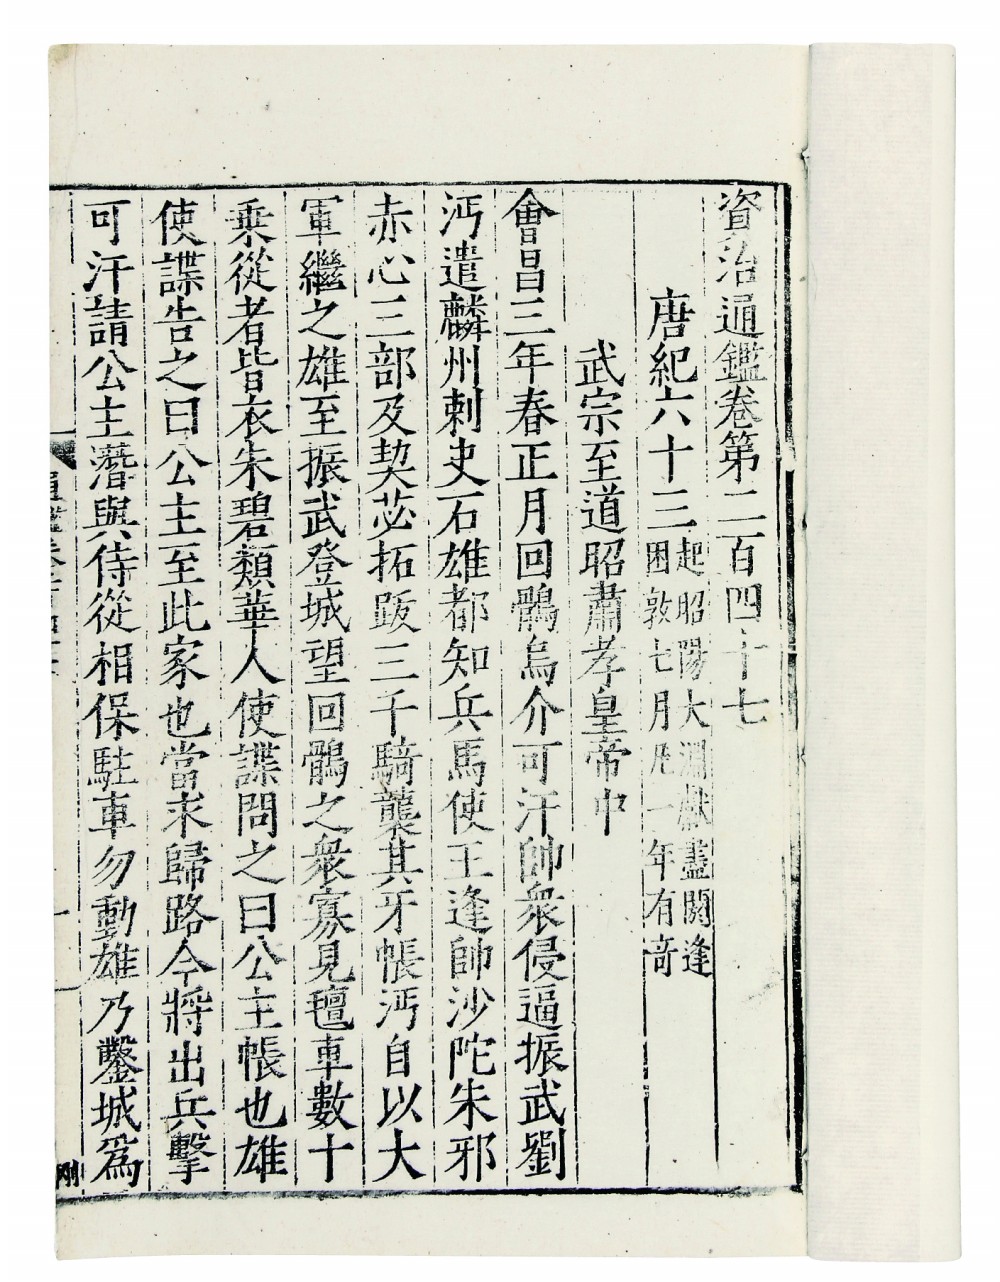 資治通鑑卷第二百四十七
唐紀六十三起昭陽大淵獻盡閼逢
困敦七月凡一年有奇
武宗至道昭肅孝皇帝中
會昌三年春正月回鶻烏介可汗帥衆侵逼振武劉
沔遣麟州刺史石雄都知兵馬使王逢帥沙陀朱邪
赤心三部及契苾拓跋三千騎襲其牙帳沔自以大
軍繼之雄至振武登城望回鶻之衆寡見氊車數十
乗從者皆衣朱碧類華人使諜問之曰公主帳也雄
使諜告之曰公主至此家也當求歸路今將出兵擊
可汗請公主潛與侍從相保駐車勿動雄乃鑿城爲